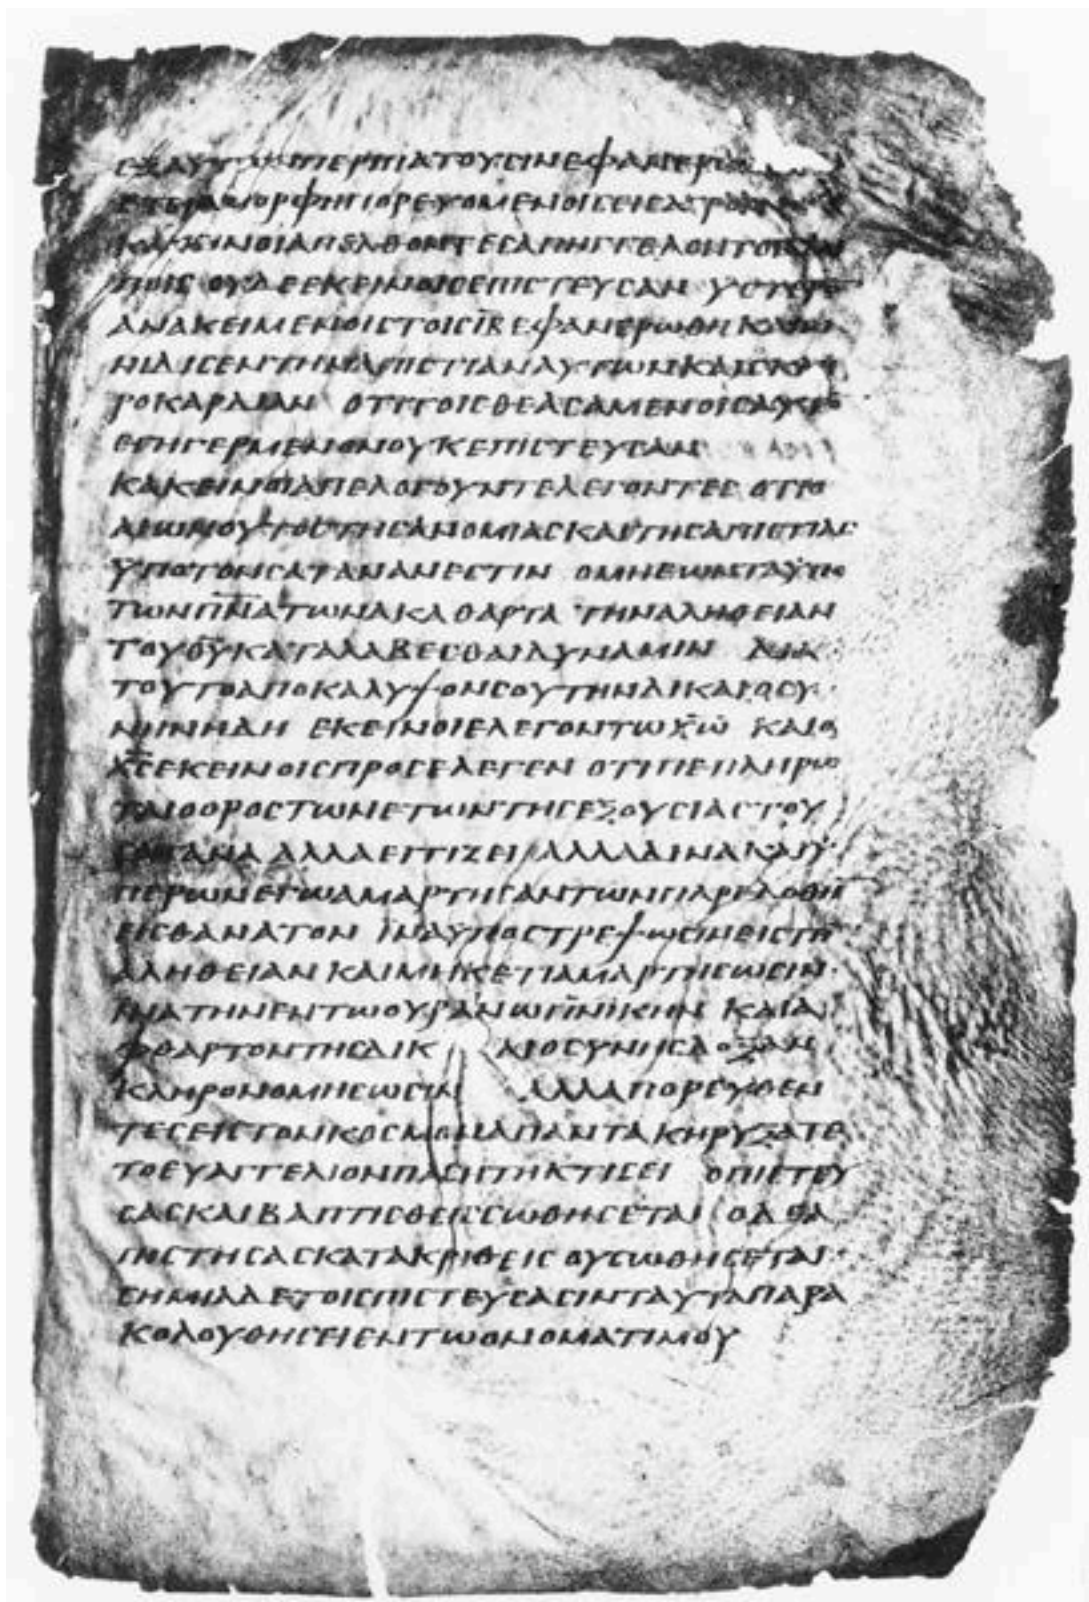 ΕΞΑΥΤΩΝΠΕΡΙΠΑΤΟΥϹΙΝΕΦΑΝΕΡΩ
ΕΤΕΡΑΜΟΡΦΗΠΟΡΕΥΟΜΕΝΟΙϹΕΙϹΑΓΡΟΝ
ΚΑΚΕΙΝΟΙΑΠΕΛΘΟΝΤΕϹΑΠΗΓΓΕΛΛΟΝΤΟΙϹΛΟΙ
ΠΟΙϹ ΟΥΔΕΕΚΕΙΝΟΙϹΕΠΙϹΤΕΥϹΑΝ ΥϹΤΕΡΟ̅
ΑΝΑΚΕΙΜΕΝΟΙϹΤΟΙϹΙ̅Α̅ΕΦΑΝΕΡΩΘΗΚΑΙΩ
ΝΙΔΙϹΕΝΤΗΝΑΠΙϹΤΙΑΝΑΥΤΩΝΚΑΙϹΚΛΗ
ΡΟΚΑΡΔΙΑΝ ΟΤΙΤΟΙϹΘΕΑϹΑΜΕΝΟΙϹΑΥΤΟ̅
ΕΓΗΓΕΡΜΕΝΟΝΟΥΚΕΠΙϹΤΕΥϹΑΝ
ΚΑΚΕΙΝΟΙΑΠΕΛΟΓΟΥΝΤΕΛΕΓΟΝΤΕϹ ΟΤΙΟ
ΑΙΩΝΟΥΤΟϹΤΗϹΑΝΟΜΙΑϹΚΑΙΤΗϹΑΠΙϹΤΙΑϹ
ΥΠΟΤΟΝϹΑΤΑΝΑΝΕϹΤΙΝ ΟΜΗΕΩΝΤΑΫΠΟ
ΤΩΝΠ̅Ν̅Α̅ΤΩΝΑΚΑΘΑΡΤΑ ΤΗΝΑΛΗΘΕΙΑΝ
ΤΟΥΘ̅Υ̅ΚΑΤΑΛΑΒΕϹΘΑΙΔΥΝΑΜΙΝ ΔΙΑ
ΤΟΥΤΟΑΠΟΚΑΛΥΨΟΝϹΟΥΤΗΝΔΙΚΑΙΟϹΥ
ΝΗΝΗΔΗ ΕΚΕΙΝΟΙΕΛΕΓΟΝΤΩΧ̅Ω̅ ΚΑΙΟ
Χ̅Ϲ̅ΕΚΕΙΝΟΙϹΠΡΟϹΕΛΕΓΕΝ ΟΤΙΠΕΠΛΗΡΩ
ΤΑΙΟΟΡΟϹΤΩΝΕΤΩΝΤΗϹΕΞΟΥϹΙΑϹΤΟΥ
ϹΑΤΑΝΑ ΑΛΛΑΕΓΓΙΖΕΙ ΑΛΛΑΔΙΝΑΚΑΙΫ
ΠΕΡΩΝΕΓΩΑΜΑΡΤΗϹΑΝΤΩΝΠΑΡΕΔΟΘΗ̅
ΕΙϹΘΑΝΑΤΟΝ ΪΝΑΥΠΟϹΤΡΕΨΩϹΙΝΕΙϹΤΗ̅
ΑΛΗΘΕΙΑΝ ΚΑΙΜΗΚΕΤΙΑΜΑΡΤΗϹΩϹΙΝ
ΪΝΑΤΗΝΕΝΤΩΟΥΡΑΝΩΠ̅Ν̅ΙΚΗΝ ΚΑΙΑ
ΦΘΑΡΤΟΝΤΗϹΔΙΚ ΑΙΟϹΥΝΗϹΔΟΞΑΝ
ΚΛΗΡΟΝΟΜΗϹΩϹΙΝ ΑΛΛΑΠΟΡΕΥΘΕΝ
ΤΕϹΕΙϹΤΟΝΚΟϹΜΟΝΑΠΑΝΤΑΚΗΡΥΞΑΤΕ
ΤΟΕΥΑΓΓΕΛΙΟΝΠΑϹΗΤΗΚΤΙϹΕΙ ΟΠΙϹΤΕΥ
ϹΑϹΚΑΙΒΑΠΤΙϹΘΕΙϹϹΩΘΗϹΕΤΑΙ ΟΔΕΑ
ΠΙϹΤΗϹΑϹΚΑΤΑΚΡΙΘΕΙϹ ΟΥϹΩΘΗϹΕΤΑΙ
ϹΗΜΙΑΔΕΤΟΙϹΠΙϹΤΕΥϹΑϹΙΝΤΑΥΤΑΠΑΡΑ
ΚΟΛΟΥΘΗϹΕΙΕΝΤΩΟΝΟΜΑΤΙΜΟΥ